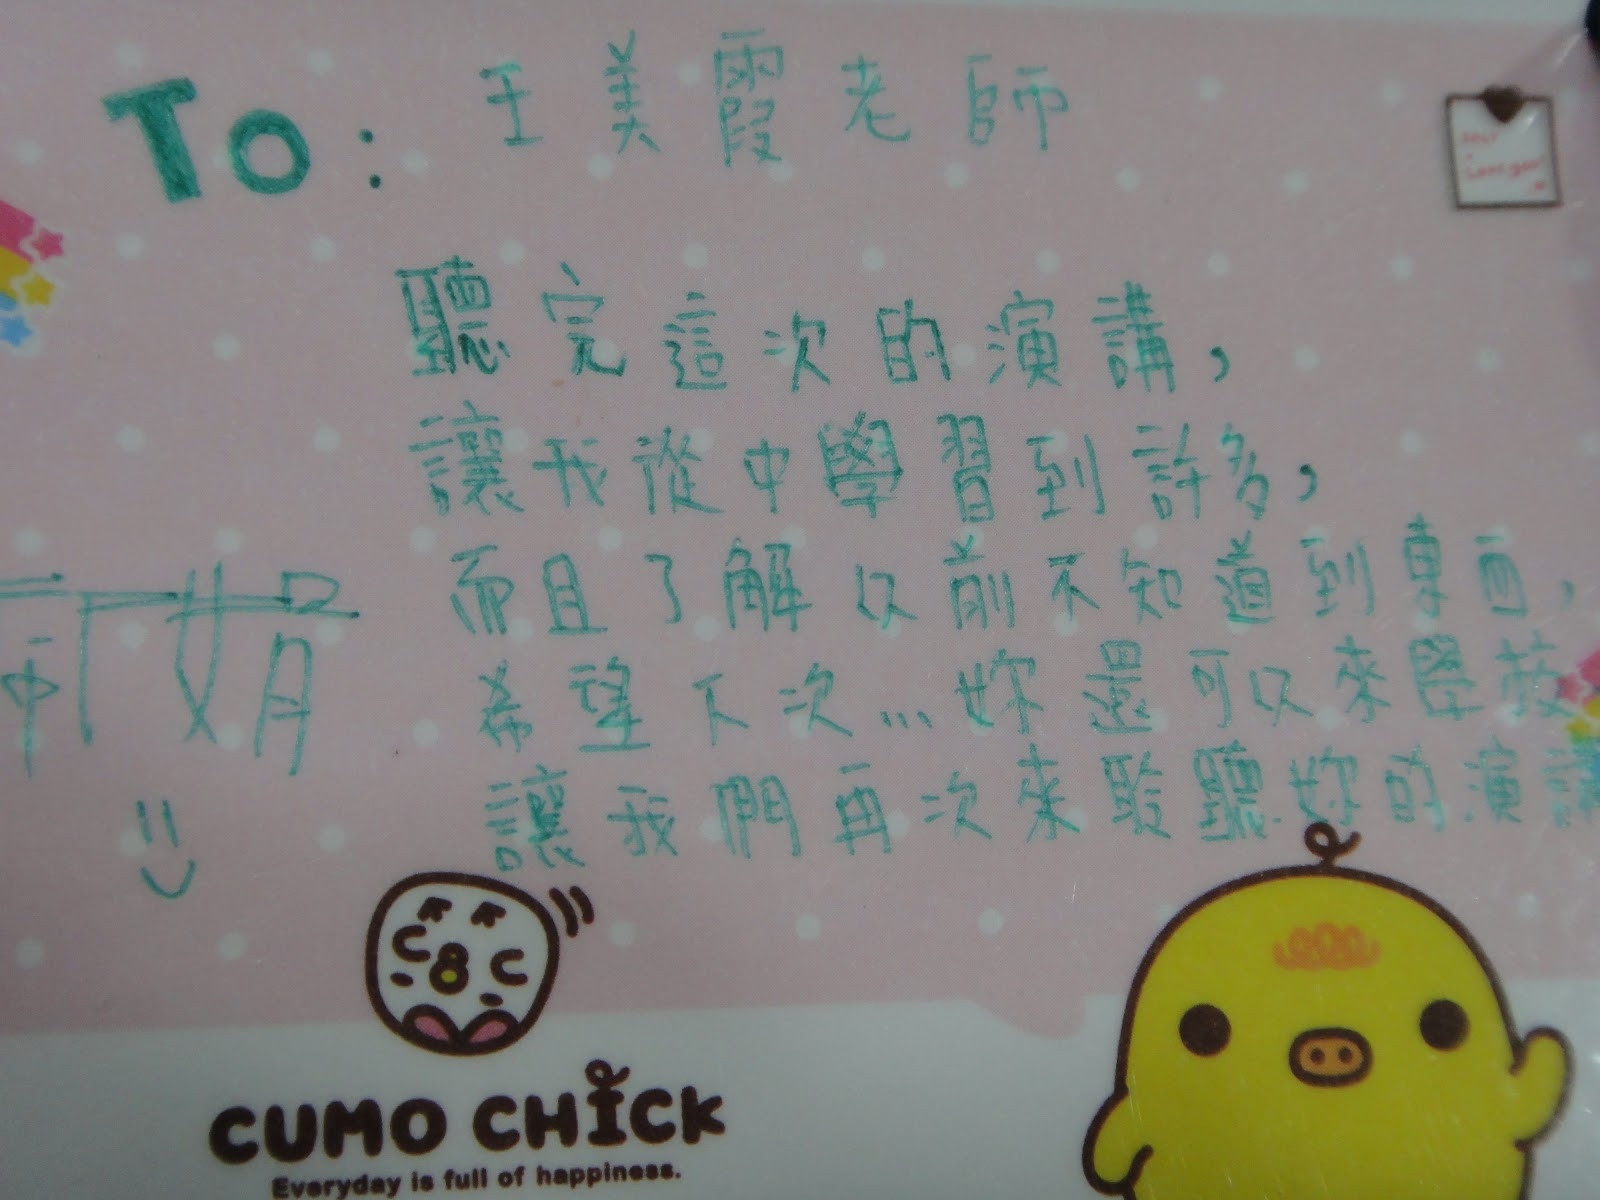 To: 王美霞老師
聽完這次的演講,
讓我從中學習到許多,
而且了解以前不知道到東西,
希望下次…妳還可以來學校
讓我們再次來聆聽妳的演講
CUMO CHICK
Everyday is full of happiness.